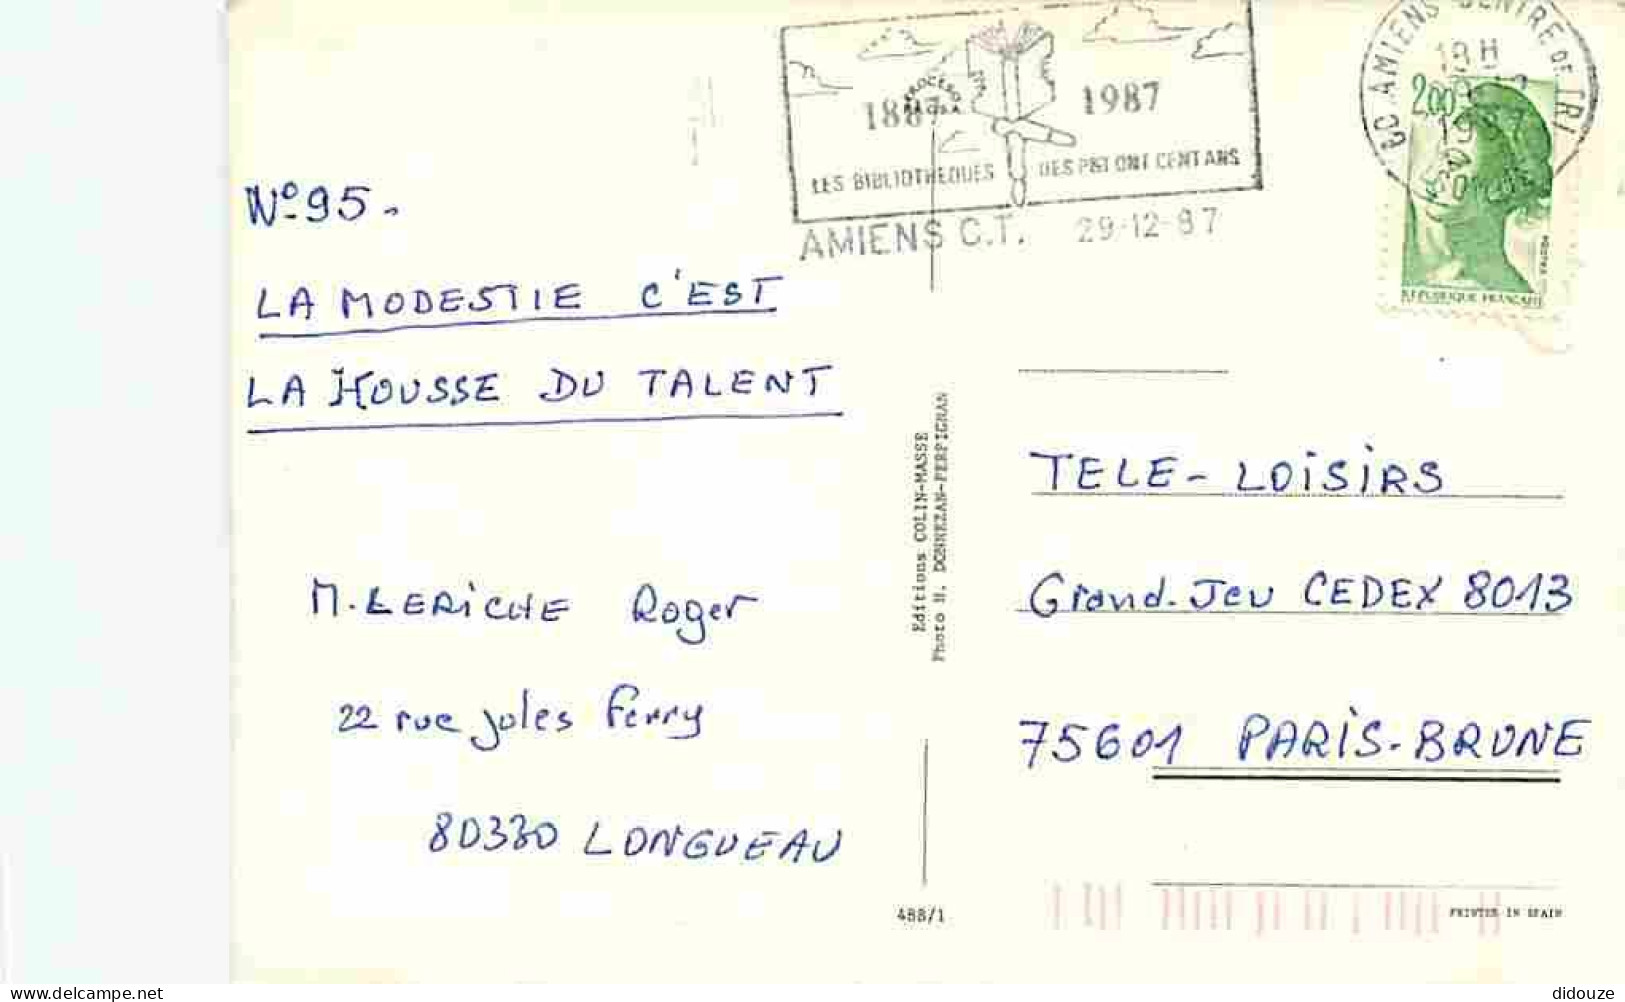 1887 1987
LES BIBLIOTHEQUES DES PTT ONT CENT ANS
AMIENS C.T. 29-12-87
80 AMIENS CENTRE DE TRI
18H
2,00
POSTES
REPUBLIQUE FRANÇAISE
N° 95.
LA MODESTIE C'EST
LA HOUSSE DU TALENT
M. LERICHE Roger
22 rue jules ferry
80330 LONGUEAU
Editions COLIN-MASSE
Photo H. DONNEZAN-PERPIGNAN
488/1
TELE-LOISIRS
Grand-Jeu CEDEX 8013
75601 PARIS-BRUNE
PRINTED IN SPAIN
www.delcampe.net
didouze